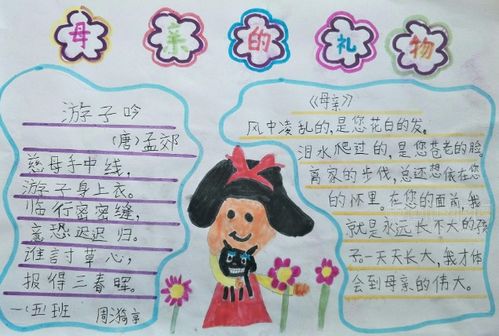 母亲的礼物
游子吟
(唐)孟郊
慈母手中线,
游子身上衣。
临行密密缝,
意恐迟迟归。
谁讨草心,
报得三春晖。
一(五)班 周漪亭
《母亲》
风中凌乱的,是您花白的发。
泪水爬过的,是您苍老的脸。
离家的步伐,总还想偎在您
的怀里。在您的面前,我
就是永远长不大的孩
子一天天长大,我才体
会到母亲的伟大。